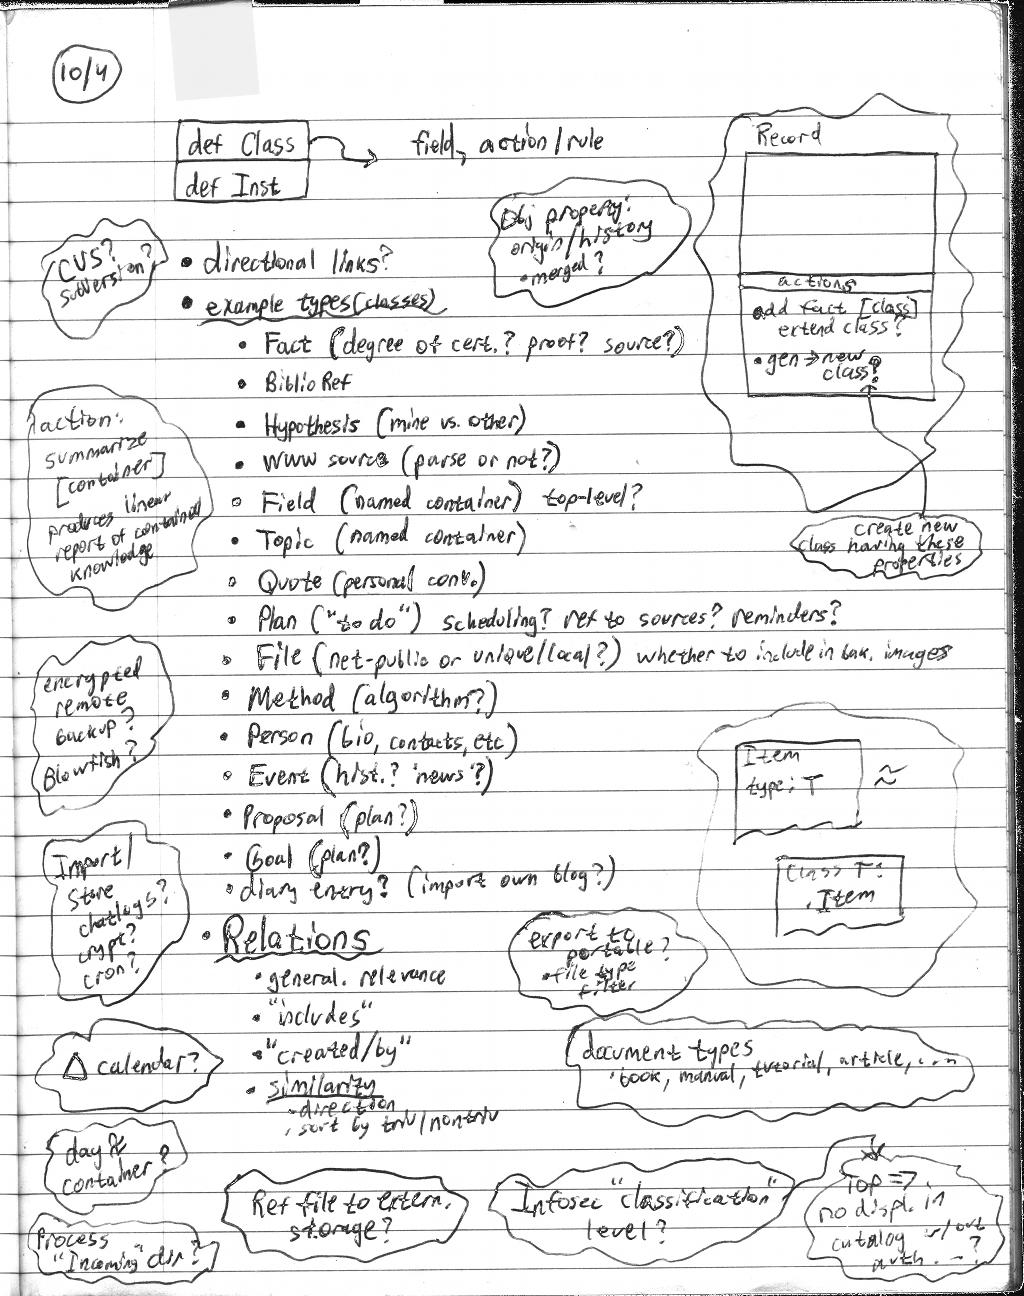 10/4
def Class
def Inst
field, action/rule
Record
actions
add fact [class]
extend class?
• gen → new
class?
create new
class having these
properties
Obj property:
origin/history
• merged?
CVS?
subversion?
• directional links?
• example types (classes)
• Fact (degree of cert.? proof? source?)
• Biblio Ref
• Hypothesis (mine vs. other)
• WWW source (parse or not?)
• Field (named container) top-level?
• Topic (named container)
• Quote (personal conv.)
• Plan ("to do") scheduling? ref to sources? reminders?
• File (net-public or unique/local?) whether to include in bak. images
• Method (algorithm?)
• Person (bio, contacts, etc)
• Event (hist.? 'news'?)
• Proposal (plan?)
• Goal (plan?)
• diary entry? (import own blog?)
action:
summarize
[container]
produces linear
report of contained
knowledge
encrypted
remote
backup?
Blowfish?
Import/
Store
chatlogs?
crypt?
cron?
Item
type: T
≈
Class T:
. Item
• Relations
• general. relevance
• "includes"
• "created/by"
• similarity
- direction
. sort by triv/nontriv
export to
portable?
• file type
filter
△ calendar?
document types
• book, manual, tutorial, article, ...
day ≈
container?
Process
"Incoming" dir?
Ref file to extern.
storage?
Infosec "classification"
level?
Top =>
no displ. in
catalog w/out
auth. - ?